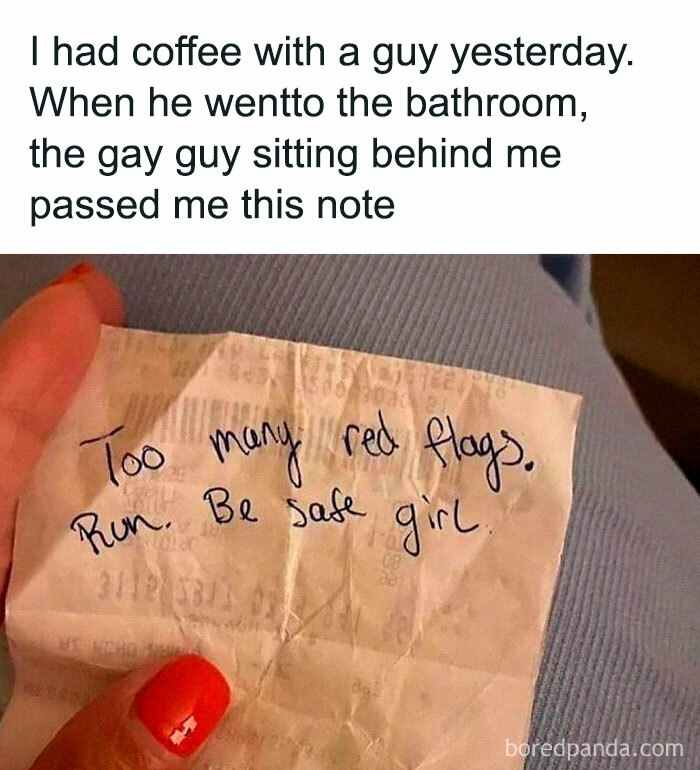 I had coffee with a guy yesterday.
When he wentto the bathroom,
the gay guy sitting behind me
passed me this note
Too many red flags.
Run. Be safe girl.
boredpanda.com